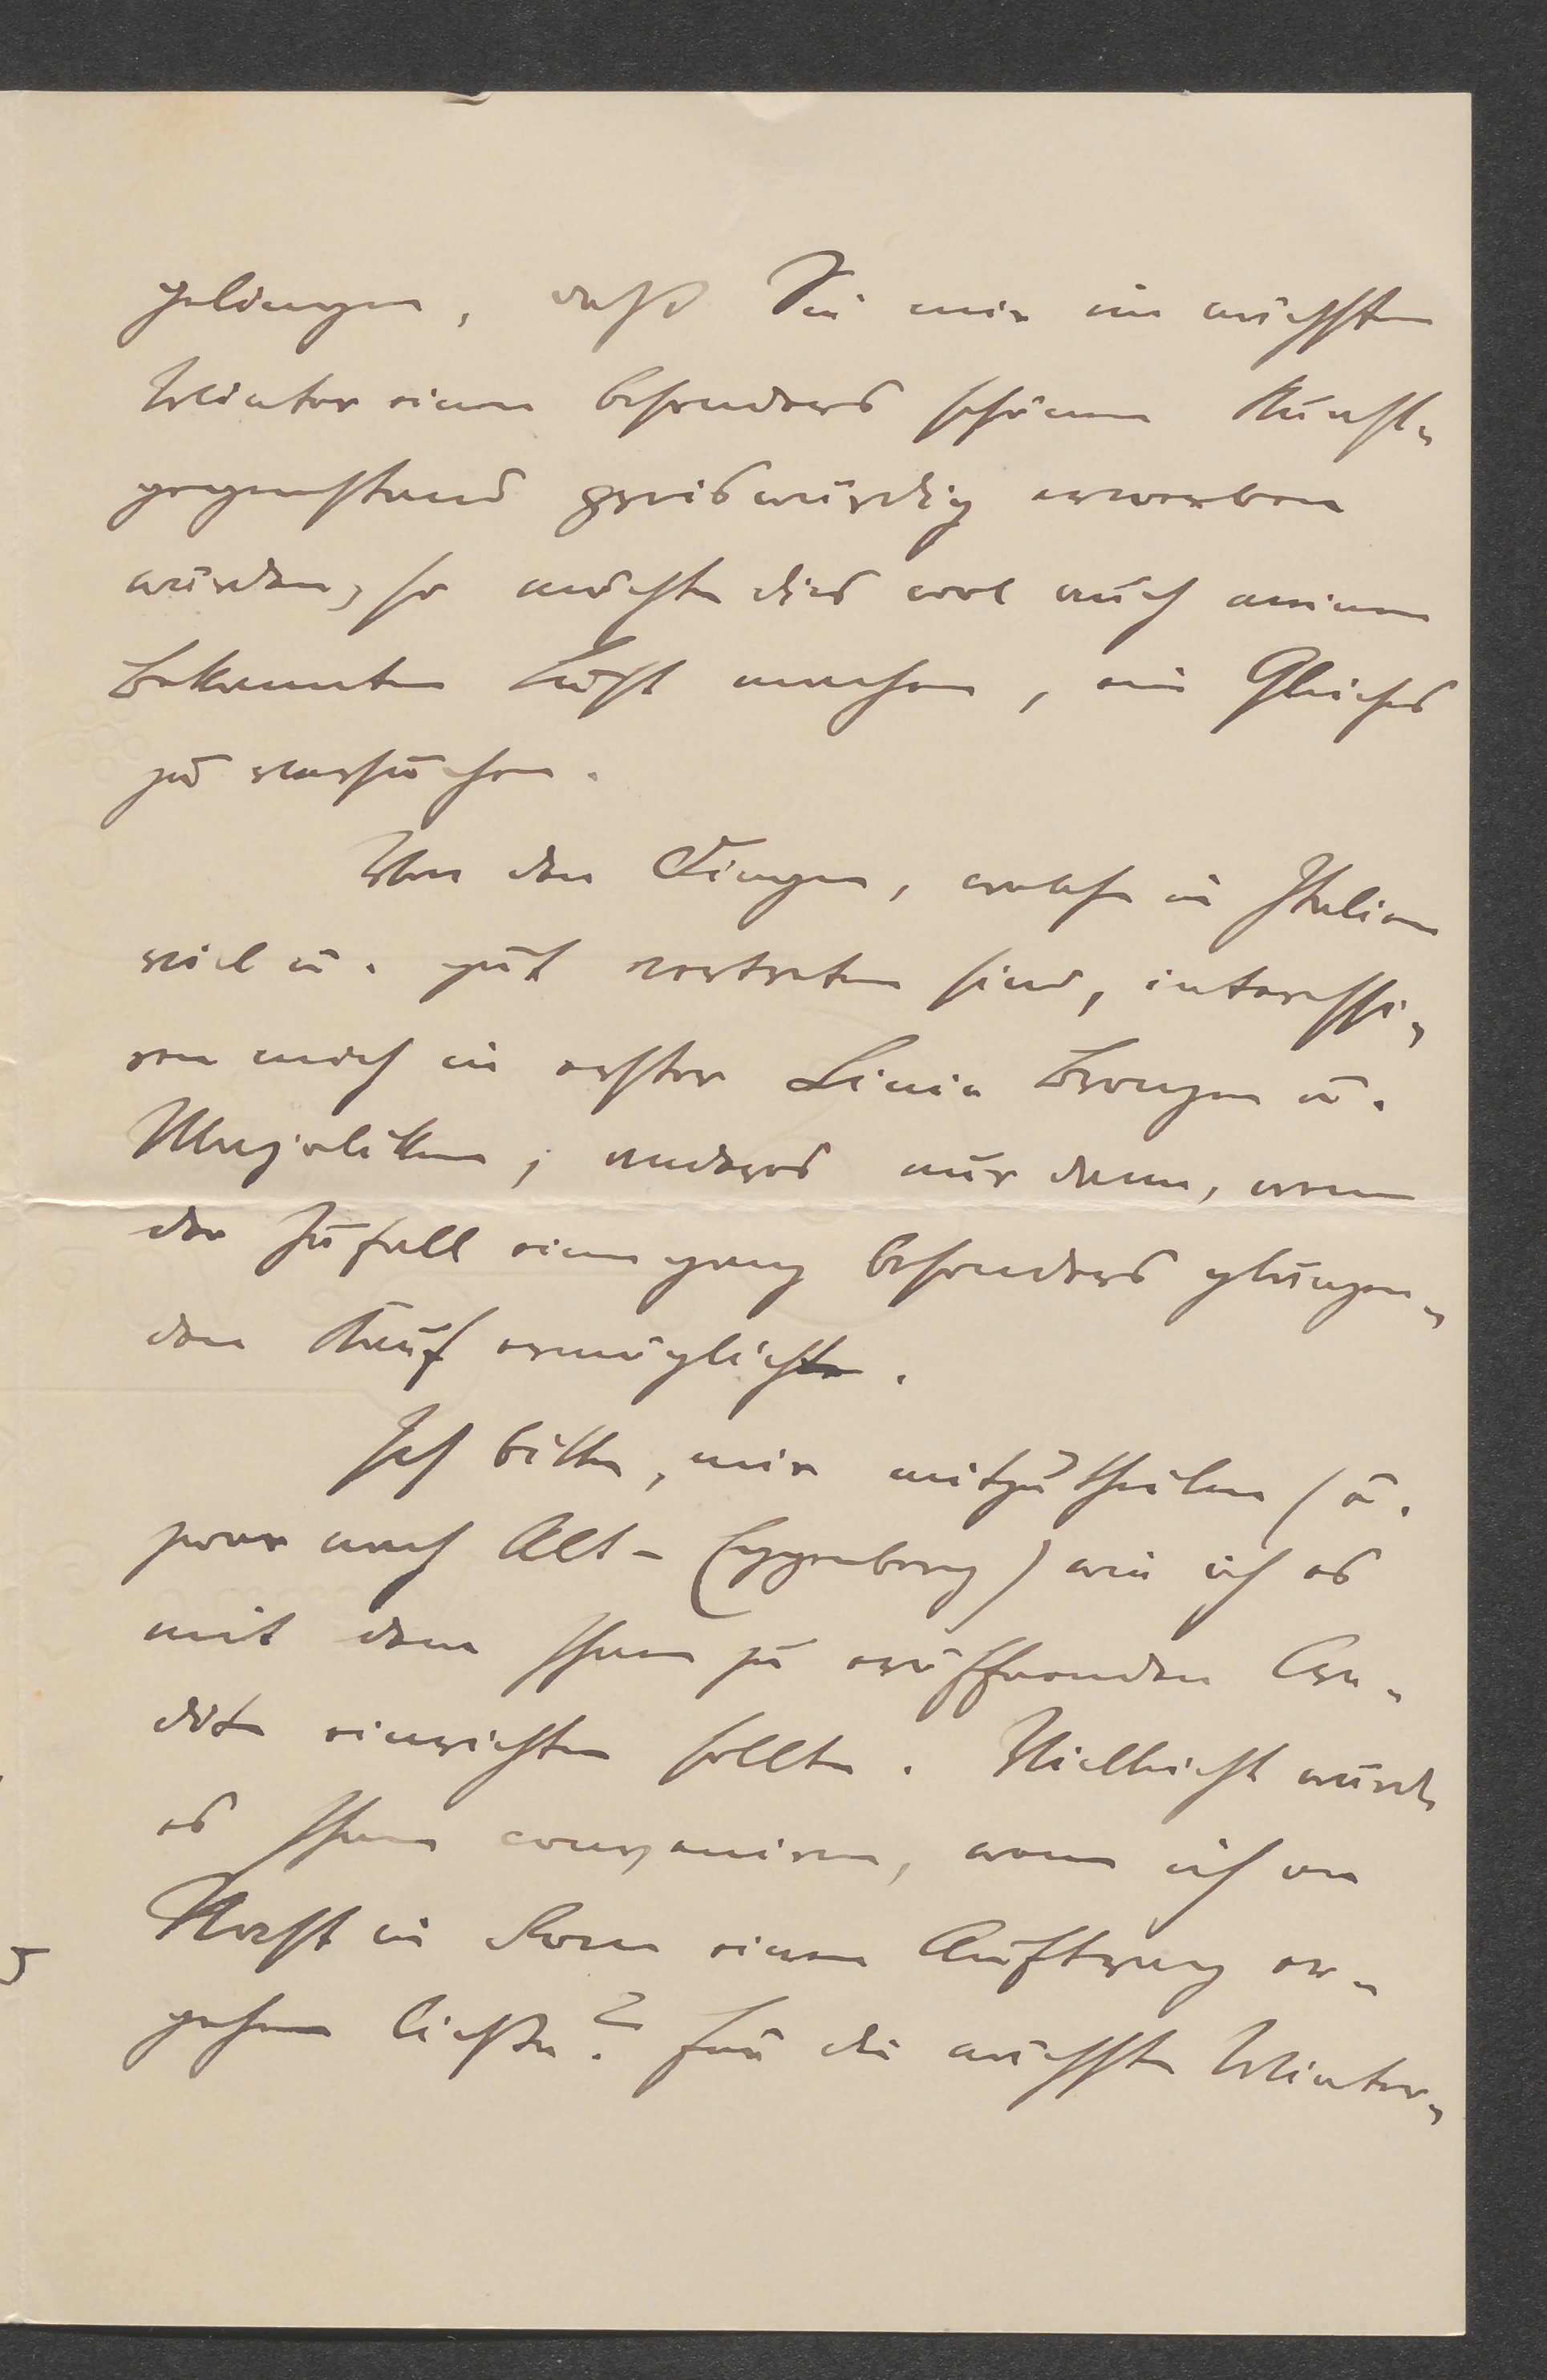 gelingen, daß Sie mir im nächsten
Winter einen besonders schönen Kunst-
gegenstand preiswürdig erwerben
würden, so möchte dies wol auch meinen
Bekannten Lust machen, ein Gleiches
zu versuchen.
Von den Dingen, welche in Italien
viel u. gut vertreten sind, interessi-
ren mich in erster Linie Bronzen u.
Majoliken; anderes nur dann, wenn
der Zufall einen ganz besonders glänzen-
den Kauf ermöglicht.
Ich bitte, mir mitzutheilen (u.
zwar nach Alt-Eggenberg) wie ich es
mit dem Ihnen zu eröffnenden Cre-
dite einrichten sollte. Vielleicht würde
es Ihnen conveniren, wenn ich an
Nast in Rom einen Auftrag er-
gehen ließe? Für die nächste Winter-